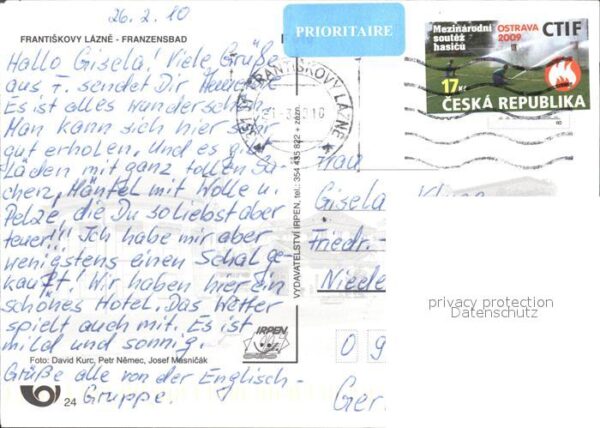 26.2.10
FRANTIŠKOVY LÁZNĚ - FRANZENSBAD
Hallo Gisela! Viele Grüße
aus F. sendet Dir
Es ist alles wunderschön.
Man kann sich hier sehr
gut erholen. Und es gibt
Läden mit ganz tollen Sa-
chen, Mäntel mit Wolle u.
Pelze, die Du so liebst aber
teuer!!! Ich habe mir aber
wenigstens einen Schal ge-
kauft! Wir haben hier ein
schönes Hotel. Das Wetter
spielt auch mit. Es ist
mild und sonnig.
Foto: David Kurc, Petr Němec, Josef Mesničák
Grüße alle von der Englisch-
Gruppe.
24
VYDAVATELSTVÍ IRPEN, tel.: 354 435 822 + zázn.
IRPEN
PRIORITAIRE
FRANTIŠKOVY LÁZNĚ
Mezinárodní
soutěž
hasičů
OSTRAVA
2009
CTIF
17 Kč
ČESKÁ REPUBLIKA
Frau
Gisela
Friedr.-
Niede
0 9
Ger.
privacy protection
Datenschutz